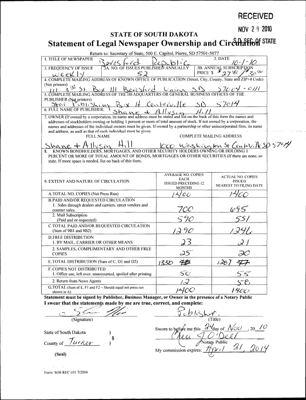 RECEIVED
NOV 21 2010
S.D. SEC. OF STATE
STATE OF SOUTH DAKOTA
Statement of Legal Newspaper Ownership and Circulation
Return to: Secretary of State, 500 E. Capitol, Pierre, SD 57501-5077
1. TITLE OF NEWSPAPER
Beresford Republic
2. DATE
10-1-10
3. FREQUENCY OF ISSUE
weekly
3A. NO. OF ISSUES PUBLISHED ANNUALLY
52
3B. ANNUAL SUBSCRIPTION
PRICE $
4. COMPLETE MAILING ADDRESS OF KNOWN OFFICE OF PUBLICATION (Street, City, County, State and Zip+4 Code)
(Not printers)
Beresford
5. COMPLETE MAILING ADDRESS OF THE HEADQUARTERS OF GENERAL BUSINESS OFFICES OF THE
PUBLISHER (Not printers)
Box H Centerville SD 57014
6. FULL NAME OF PUBLISHER:
Shane & Allison Hill
7. OWNER (If owned by a corporation, its name and address must be stated and also immediately thereafter the names and
addresses of stockholders owning or holding 1 percent or more of total amount of stock. If not owned by a corporation, the
names and addresses of the individual owners must be given. If owned by a partnership or other unincorporated firm, its name
and address, as well as that of each individual must be given.
FULL NAME
COMPLETE MAILING ADDRESS
Shane & Allison Hill
Washington St Centerville SD 57014
8. KNOWN BONDHOLDERS, MORTGAGES, AND OTHER SECURITY HOLDERS OWNING OR HOLDING 1
PERCENT OR MORE OF TOTAL AMOUNT OF BONDS, MORTGAGES OR OTHER SECURITIES (If there are none, so
state. If more space is needed, list on back of this form.
9. EXTENT AND NATURE OF CIRCULATION
AVERAGE NO. COPIES
EACH
ISSUES PRECEDING 12
MONTHS
ACTUAL NO. COPIES
ISSUED
NEAREST TO FILING DATE
A. TOTAL NO. COPIES (Net Press Run)
1400
1400
B. PAID AND/OR REQUESTED CIRCULATION
1. Sales through dealers and carriers, street vendors and
counter sales.
700
695
2. Mail Subscription
(Paid and or requested)
590
551
C. TOTAL PAID AND/OR REQUESTED CIRCULATION
(Sum of 9B1 and 9B2)
1290
1246
D. FREE DISTRIBUTION
1. BY MAIL, CARRIER OR OTHER MEANS
23
21
2. SAMPLES, COMPLIMENTARY AND OTHER FREE
COPIES
25
20
E. TOTAL DISTRIBUTION (Sum of C, D1 and D2)
1338
1287
F. COPIES NOT DISTRIBUTED
1. Office use, left over, unaccounted, spoiled after printing
50
55
2. Return from News Agents
12
58
G. TOTAL (Sum of E, F1 and F2 - Should equal net press run
shown in A)
1400
1400
Statement must be signed by Publisher, Business Manager, or Owner in the presence of a Notary Public
I swear that the statements made by me are true, correct, and complete:
Publisher
(Signature)
(Title)
State of South Dakota )
County of Turner )
(Seal)
Sworn to before me this day of Nov 20 10
Notary Public
My commission expires: April 21, 2014
Form: SOS REC 051 7/2004